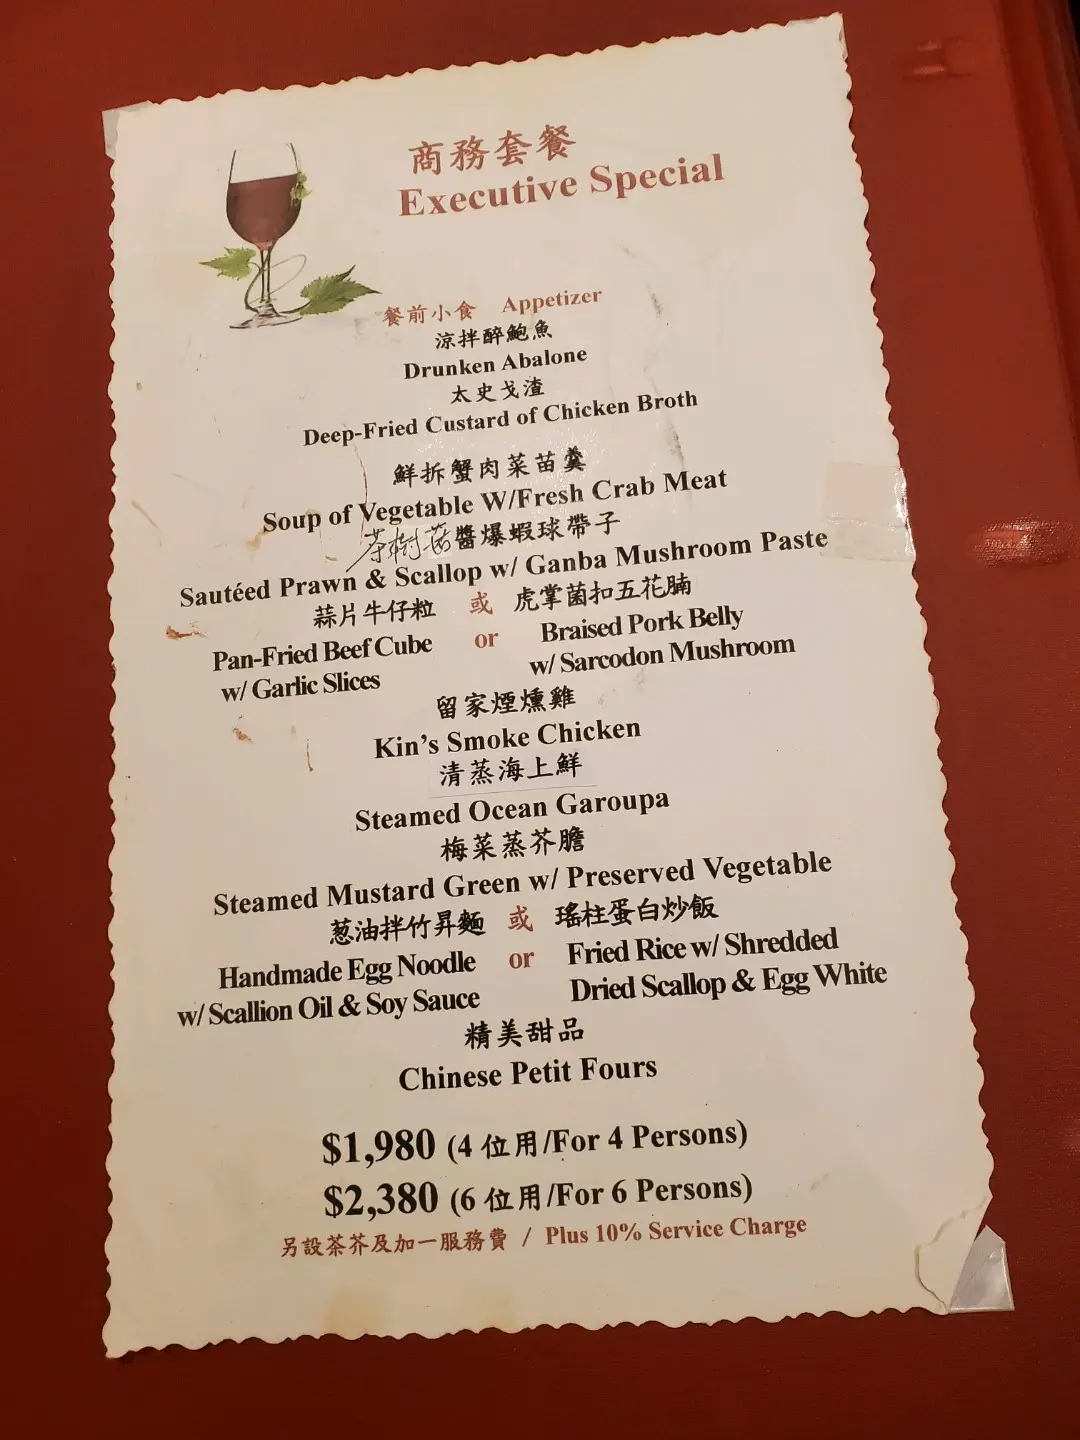 商務套餐
Executive Special
餐前小食 Appetizer
涼拌醉鮑魚
Drunken Abalone
太史戈渣
Deep-Fried Custard of Chicken Broth
鮮拆蟹肉菜苗羹
Soup of Vegetable W/Fresh Crab Meat
茶樹菇醬爆蝦球帶子
Sautéed Prawn & Scallop w/ Ganba Mushroom Paste
蒜片牛仔粒 或 虎掌菌扣五花腩
Pan-Fried Beef Cube or Braised Pork Belly
w/ Garlic Slices w/ Sarcodon Mushroom
留家煙燻雞
Kin's Smoke Chicken
清蒸海上鮮
Steamed Ocean Garoupa
梅菜蒸芥膽
Steamed Mustard Green w/ Preserved Vegetable
葱油拌竹昇麵 或 瑤柱蛋白炒飯
Handmade Egg Noodle or Fried Rice w/ Shredded
w/ Scallion Oil & Soy Sauce Dried Scallop & Egg White
精美甜品
Chinese Petit Fours
$1,980 (4 位用/For 4 Persons)
$2,380 (6 位用/For 6 Persons)
另設茶芥及加一服務費 / Plus 10% Service Charge